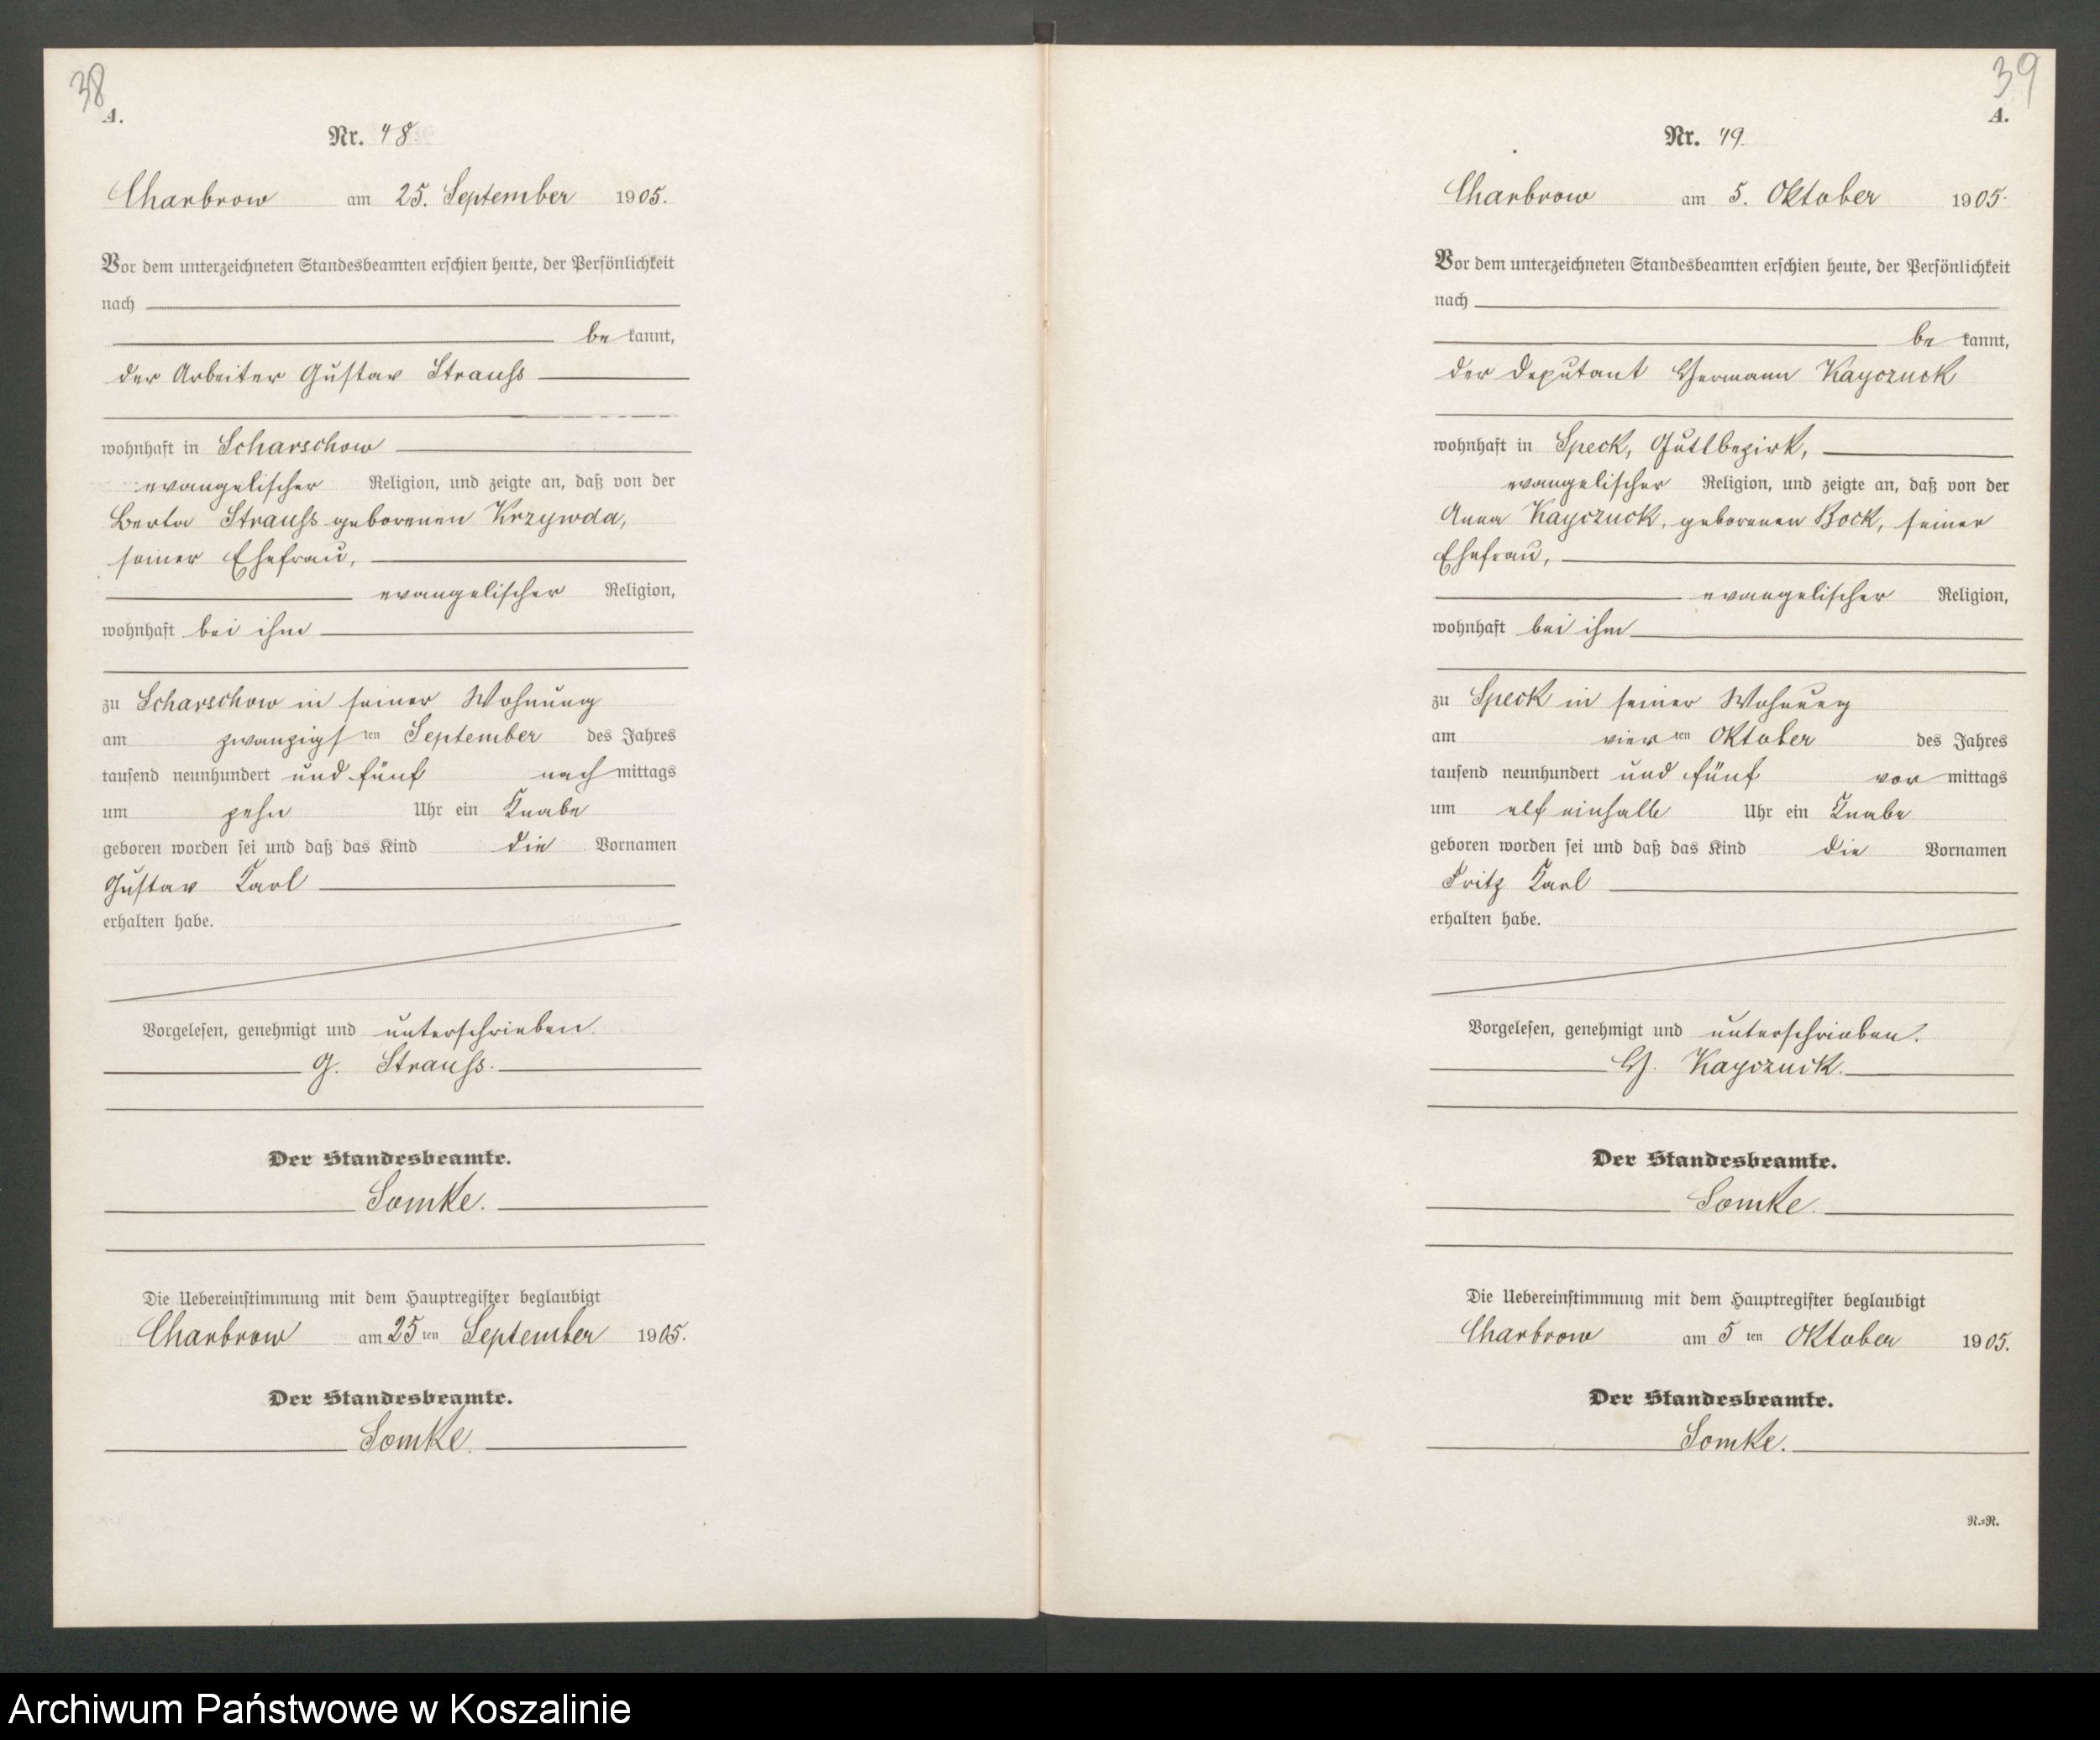 38
A.
Nr. 48.
Charbrow am 25. September 1905.
Vor dem unterzeichneten Standesbeamten erschien heute, der Persönlichkeit
nach
bekannt,
der Arbeiter Gustav Strauss
wohnhaft in Scharschow
evangelischer Religion, und zeigte an, daß von der
Berta Strauss geborenen Krzywda,
seiner Ehefrau,
evangelischer Religion,
wohnhaft bei ihm
zu Scharschow in seiner Wohnung
am zwanzigsten September des Jahres
tausend neunhundert und fünf nachmittags
um zehn Uhr ein Knabe
geboren worden sei und daß das Kind die Vornamen
Gustav Karl
erhalten habe.
Vorgelesen, genehmigt und unterschrieben.
G. Strauss.
Der Standesbeamte.
Somke.
Die Uebereinstimmung mit dem Hauptregister beglaubigt
Charbrow am 25ten September 1905.
Der Standesbeamte.
Somke.
39
A.
Nr. 49.
Charbrow am 5. Oktober 1905.
Vor dem unterzeichneten Standesbeamten erschien heute, der Persönlichkeit
nach
bekannt,
der Deputant Hermann Kayczuck
wohnhaft in Speck, Gutsbezirk,
evangelischer Religion, und zeigte an, daß von der
Anna Kayczuck, geborenen Bock, seiner
Ehefrau,
evangelischer Religion,
wohnhaft bei ihm
zu Speck in seiner Wohnung
am vierten Oktober des Jahres
tausend neunhundert und fünf vormittags
um elf einhalb Uhr ein Knabe
geboren worden sei und daß das Kind die Vornamen
Fritz Karl
erhalten habe.
Vorgelesen, genehmigt und unterschrieben.
H. Kayczuck.
Der Standesbeamte.
Somke.
Die Uebereinstimmung mit dem Hauptregister beglaubigt
Charbrow am 5ten Oktober 1905.
Der Standesbeamte.
Somke.
N.=R.
Archiwum Państwowe w Koszalinie